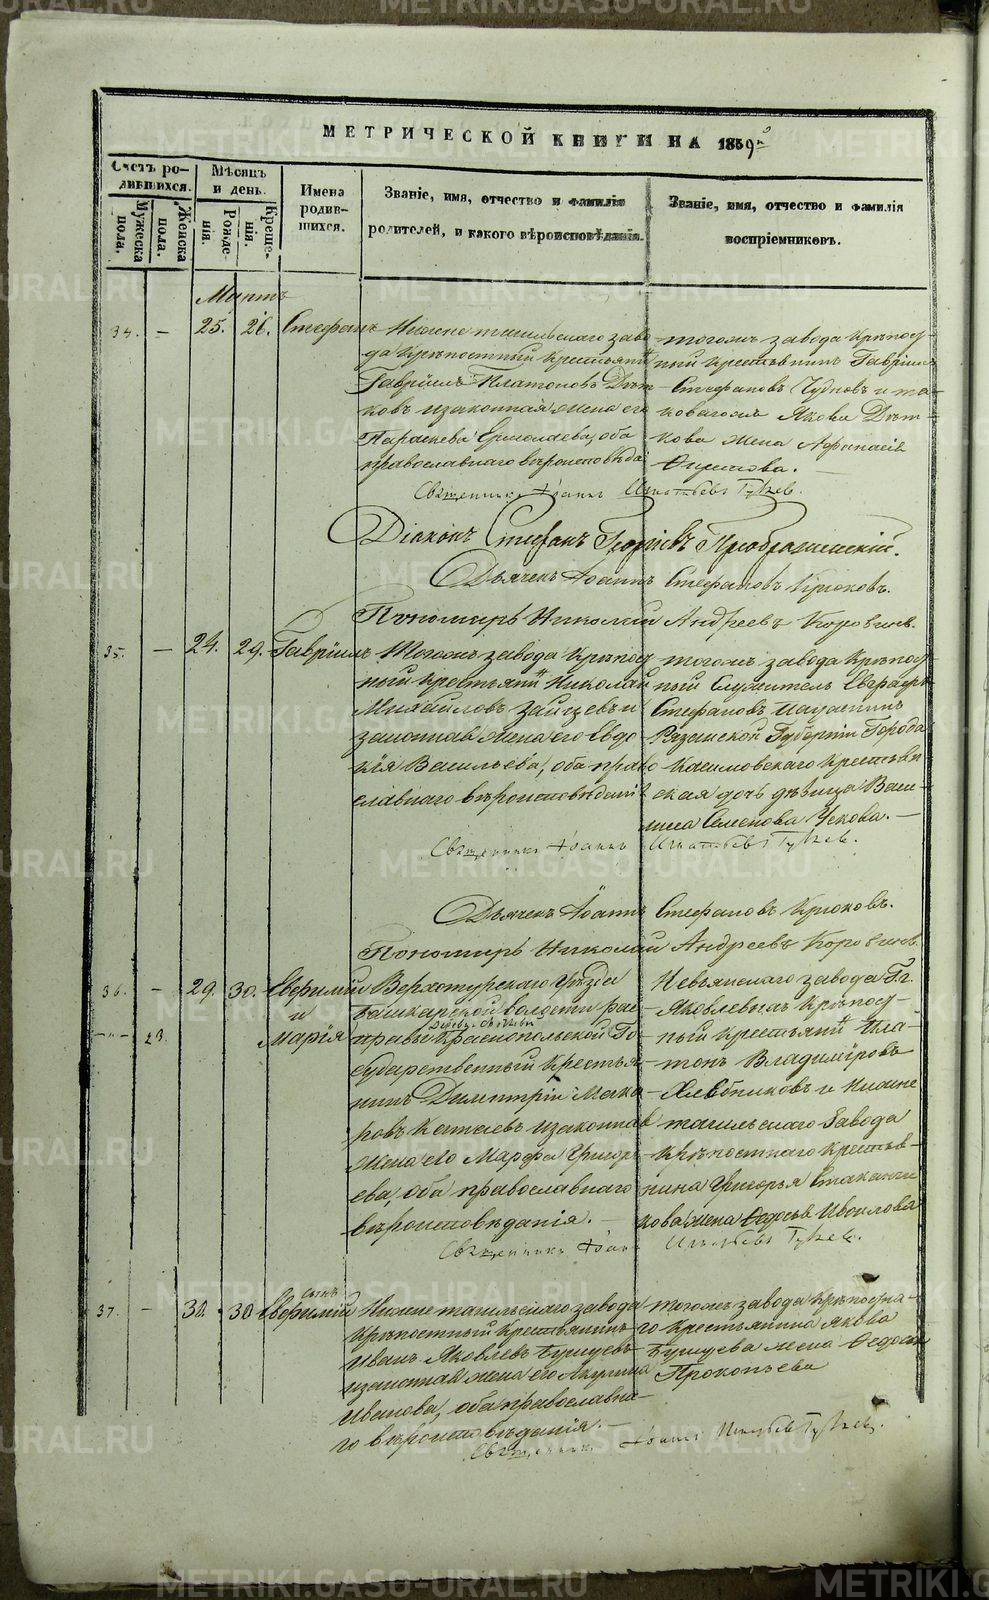 МЕТРИЧЕСКОЙ КНИГИ НА 1859
Счетъ родившихся.
Мужеска пола.
Женска пола.
Мѣсяцъ и день.
Рожденія.
Крещенія.
Имена родившихся.
Званіе, имя, отчество и фамилія
родителей, и какого вѣроисповѣданія.
Званіе, имя, отчество и фамилія
воспріемниковъ.
Мартъ
34. — 25. 26. Стефанъ
Нижнетагильскаго заво
да крѣпостный крестьянинъ
Гавріилъ Платоновъ
ковъ и законная жена его
Параскева Ермолаева, оба
православнаго вѣроисповѣда
тогожъ завода крѣпост
ный крестьянинъ Гавріилъ
Стефановъ Чудновъ и та
коваго Якова
кова жена
Священникъ Іоаннъ Игнатьевъ
Діаконъ Стефанъ Георгіевъ Преображенскій.
Дьячекъ Іоаннъ Стефановъ Крюковъ.
Пономарь Николай Андреевъ Коровинъ.
35. — 24. 29. Гавріилъ
Тогожъ завода крѣпост
ный крестьянинъ Николай
Михайловъ Зайцевъ и
законная жена его Евдо
кія Васильева, оба право
славнаго вѣроисповѣданія
тогожъ завода крѣпост
ный служитель Евграфъ
Стефановъ
Рязанской Губерніи Города
Касимовскаго крестьян
ская дочь дѣвица Васи
лиса Семенова Ускова. —
Священникъ Іоаннъ Игнатьевъ
Дьячекъ Іоаннъ Стефановъ Крюковъ.
Пономарь Николай Андреевъ Коровинъ.
36. — 29. 30. Евфимій
и
23. Марія
Верхотурскаго Уѣзда
Башкарской волости рас
правы Краснопольской Го
сударственный крестья
нинъ Димитрій Мака
ровъ Катаевъ и законная
жена его Марфа Григорь
ева, оба православнаго
вѣроисповѣданія. —
Невьянскаго завода Гг.
Яковлевыхъ крѣпост
ный крестьянинъ Пла
тонъ Владиміровъ
Хлѣбниковъ и Нижне
тагильскаго завода
крѣпостнаго крестьян
нина Григорья Стаканчи
кова жена Федосья
Священникъ Іоаннъ Игнатьевъ
37. — 30. 30 сынъ
Евфимій
Нижнетагильскаго завода
крѣпостный крестьянинъ
Иванъ Яковлевъ
и законная жена его Акулина
Иванова, оба православна
го вѣроисповѣданія. —
тогожъ завода крѣпостна
го крестьянина Якова
жена Федосья
Прокопьева
Священникъ Іоаннъ Игнатьевъ
METRIKI.GASO-URAL.RU